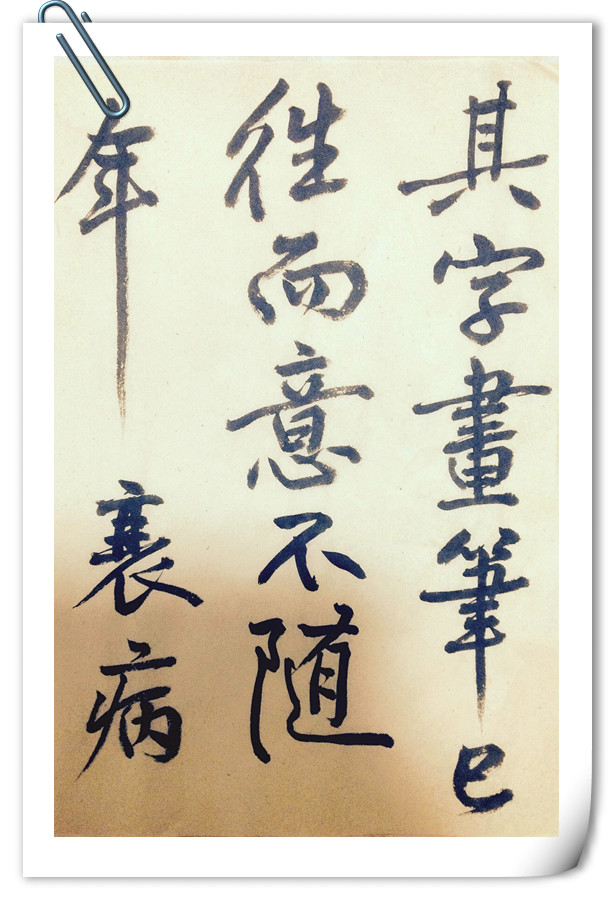 其字畫筆已
往而意不随
年 衰病